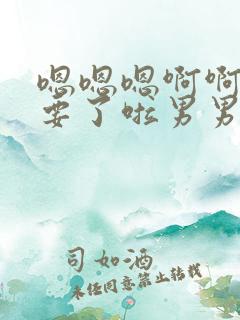 嗯嗯嗯啊啊
要了啦男男
司如酒
未经同意禁止转载